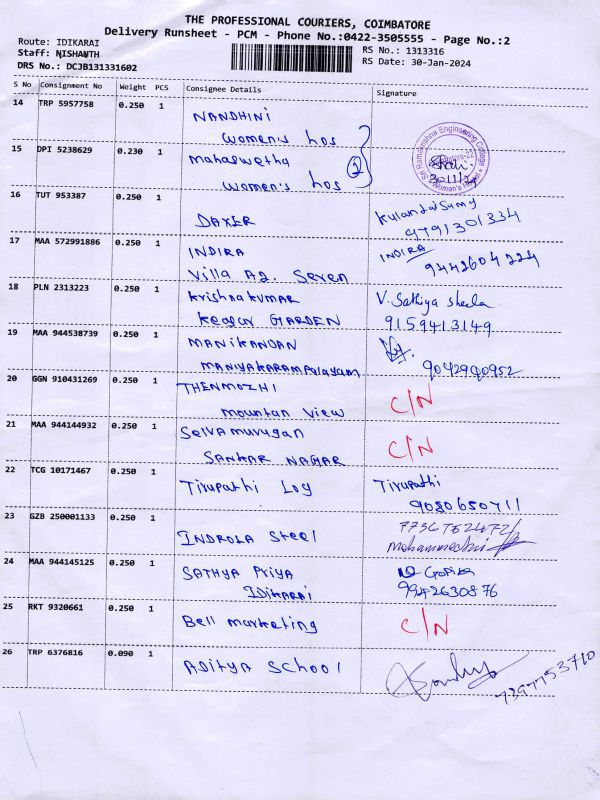 THE PROFESSIONAL COURIERS, COIMBATORE
Delivery Runsheet - PCM - Phone No.:0422-3505555 - Page No.:2
Route: IDIKARAI
Staff: NISHANTH
DRS No.: DCJB131331602
RS No.: 1313316
RS Date: 30-Jan-2024
S No Consignment No Weight PCS Consignee Details Signature
14 TRP 5957758 0.250 1
NANDHINI
women's hos
15 DPI 5238629 0.230 1
mahaswetha
women's hos
2
Sri Ramakrishna Engineering College
Women's Hostel
16 TUT 953387 0.250 1
DAXER
9791301334
17 MAA 572991886 0.250 1
INDIRA
Villa A2. Seven
INDIRA
9442604224
18 PLN 2313223 0.250 1
Krishnakumar
Keagar GARDEN
V. Sathiya sheela
9159413149
19 MAA 944538739 0.250 1
MANIKANDAN
MANIYAKARAMPalayam
9042940952
20 GGN 910431269 0.250 1
THENMOZHI
mountan view
C/N
21 MAA 944144932 0.250 1
Selvamurugan
SANKAR NAGAR
C/N
22 TCG 10171467 0.250 1
Tirupathi Log
Tirupathi
9080650711
23 GZB 250001133 0.250 1
INDROLA Steel
24 MAA 944145125 0.250 1
SATHYA Priya
IDikarai
Gopika
9942630876
25 RKT 9320661 0.250 1
Bell marketing
C/N
26 TRP 6376816 0.090 1
ADitya School
7397753710